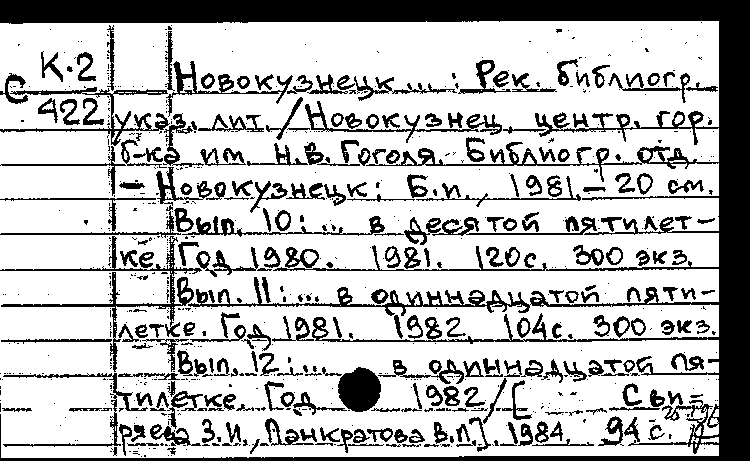 С К.2
422
Новокузнецк ... : Рек. библиогр.
указ. лит. / Новокузнец. центр. гор.
б-ка им. Н.В. Гоголя. Библиогр. отд.
— Новокузнецк: Б.и., 1981. – 20 см.
Вып. 10: ... в десятой пятилет-
ке. Год 1980. 1981. 120с. 300 экз.
Вып. 11: ... в одиннадцатой пяти-
летке. Год 1981. 1982. 104с. 300 экз.
Вып. 12: ... в одиннадцатой пя-
тилетке. Год 1982 / [ Сви=
ряева З.И., Панкратова В.П.]. 1984. 94 с.